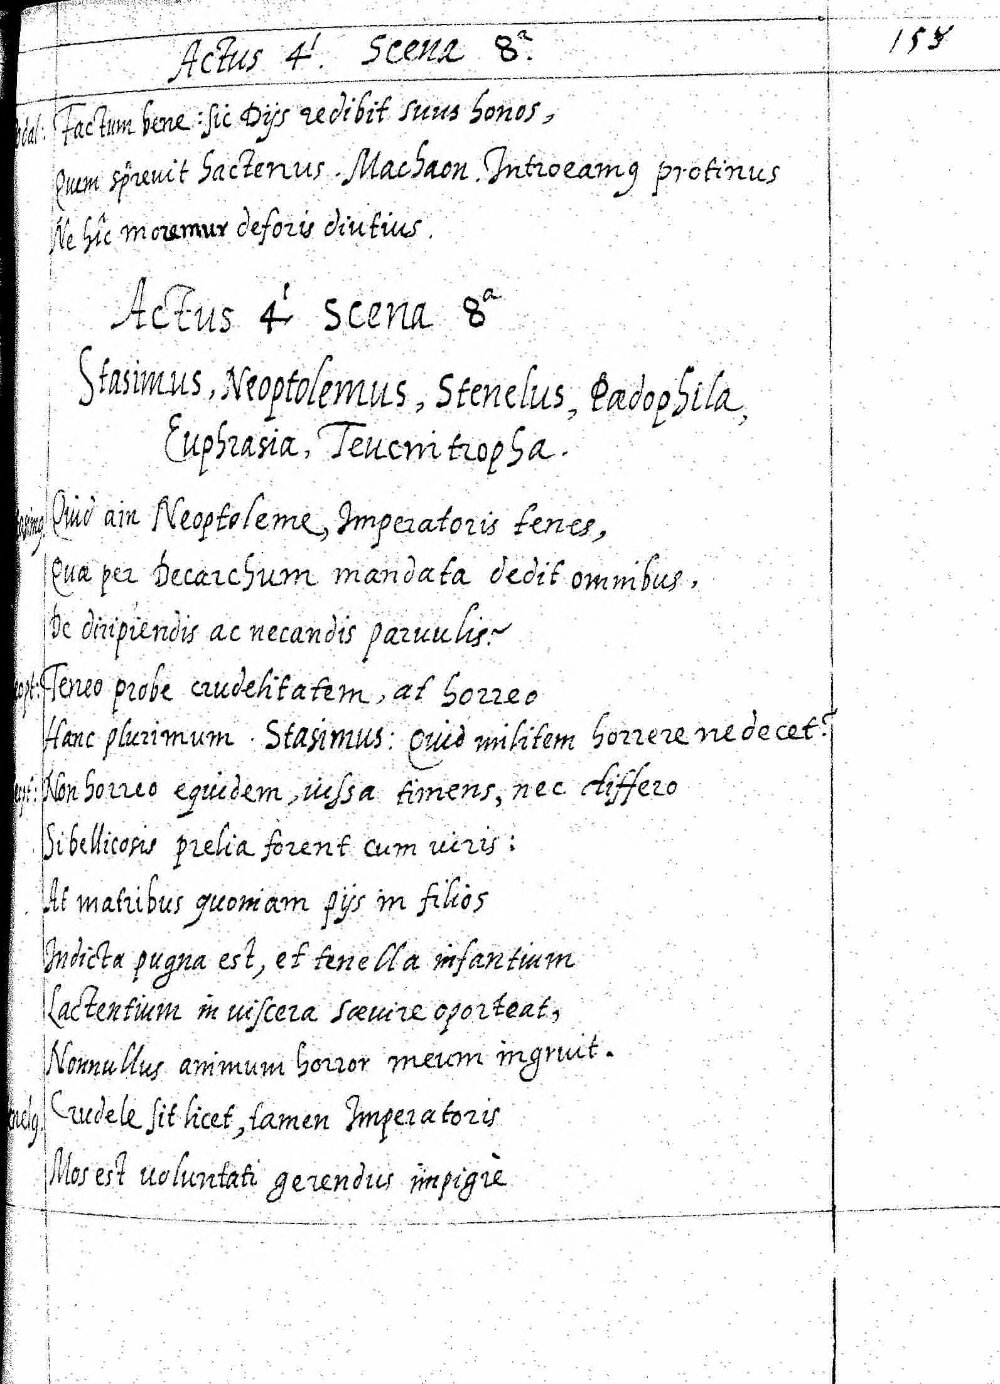 Actus 4ⁱ. Scena 8ᵃ.
153
odal: Factum bene: sic Dijs redibit suus honos,
Quem spreuit hactenus. Machaon. Introeamꝗ protinus
Ne hîc moremur deforis diutius.
Actus 4ⁱ Scena 8ᵃ
Stasimus, Neoptolemus, Stenelus, Pædophila,
Euphrasia, Teucnitropha.
Quid ain Neoptoleme, Imperatoris tenes,
Quæ per Decarchum mandata dedit omnibus,
De diripiendis ac necandis paruulis?
eopt: Teneo probe crudelitatem, at horreo
Hanc plurimum. Stasimus: Quid militem horrere ne decet?
eopt: Non horreo equidem, iussa timens, nec differo
Si bellicosis prelia forent cum uiris:
At matribus quoniam pijs in filios
Indicta pugna est, et tenella infantium
Lactentium in uiscera sæuire oporteat,
Nonnullus animum horror meum ingruit.
enelꝗ. Crudele sit licet, tamen Imperatoris
Mos est uoluntati gerendus impigrè